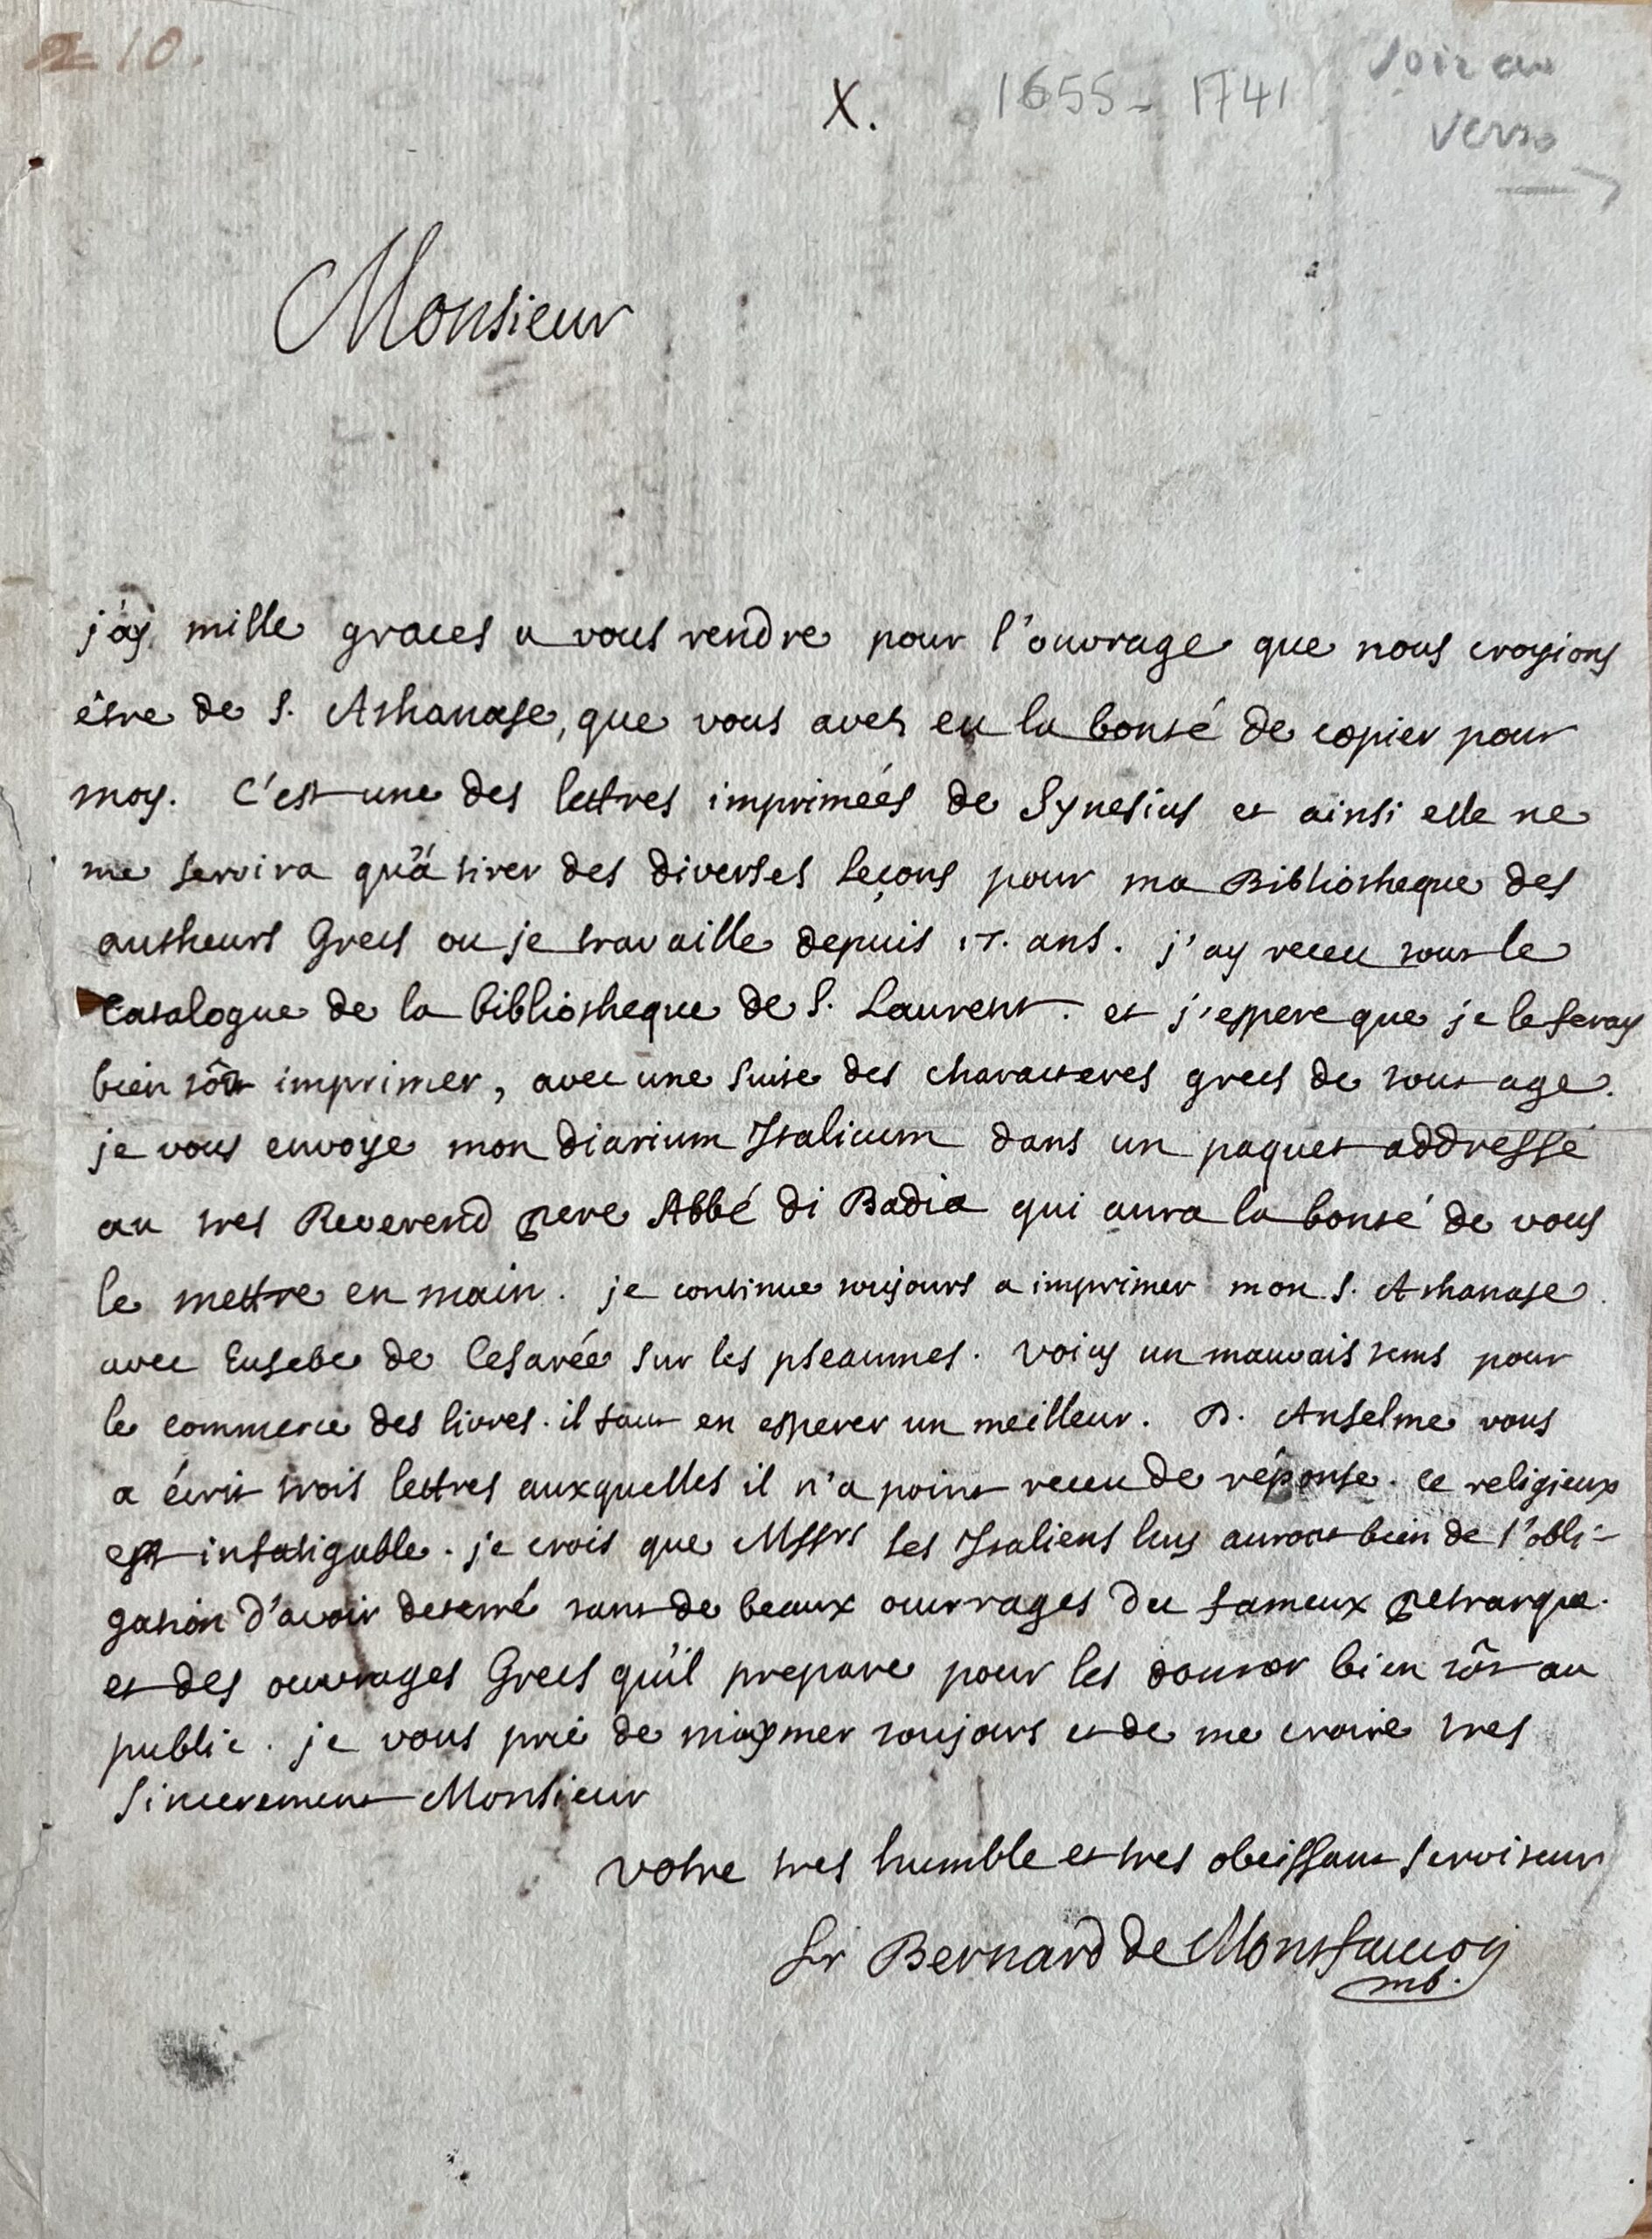 2 10.
X.
1655 - 1741
Voir au
verso
Monsieur
j'ay mille graces a vous rendre pour l'ouvrage que nous croyions
être de S. Athanase, que vous avez eu la bonté de copier pour
moy. C'est une des lettres imprimées de Synesius et ainsi elle ne
me servira qu'à tirer des diverses leçons pour ma Bibliotheque des
autheurs Grecs ou je travaille depuis ans. j'ay receu tout le
Catalogue de la bibliotheque de S. Laurent. et j'espere que je le feray
bien tôt imprimer, avec une suite des characteres grecs de tout age.
je vous envoye mon diarium Italicum dans un paquet addressé
au tres Reverend pere Abbé di Badia qui aura la bonté de vous
le mettre en main. je continue toujours a imprimer mon S. Athanase
avec Eusebe de Cesarée sur les pseaumes. voicy un mauvais tems pour
le commerce des livres. il faut en esperer un meilleur. D. Anselme vous
a écrit trois lettres auxquelles il n'a point receu de réponse. ce religieux
est infatigable. je crois que Mssrs les Italiens luy auront bien de l'obli-
gation d'avoir deterré tant de beaux ouvrages du fameux petrarque.
et des ouvrages Grecs qu'il prepare pour les donner bien tôt au
public. je vous prie de m'aymer toujours et de me croire tres
sincerement Monsieur
votre tres humble et tres obeissant serviteur
fr Bernard de Montfaucon
mb.